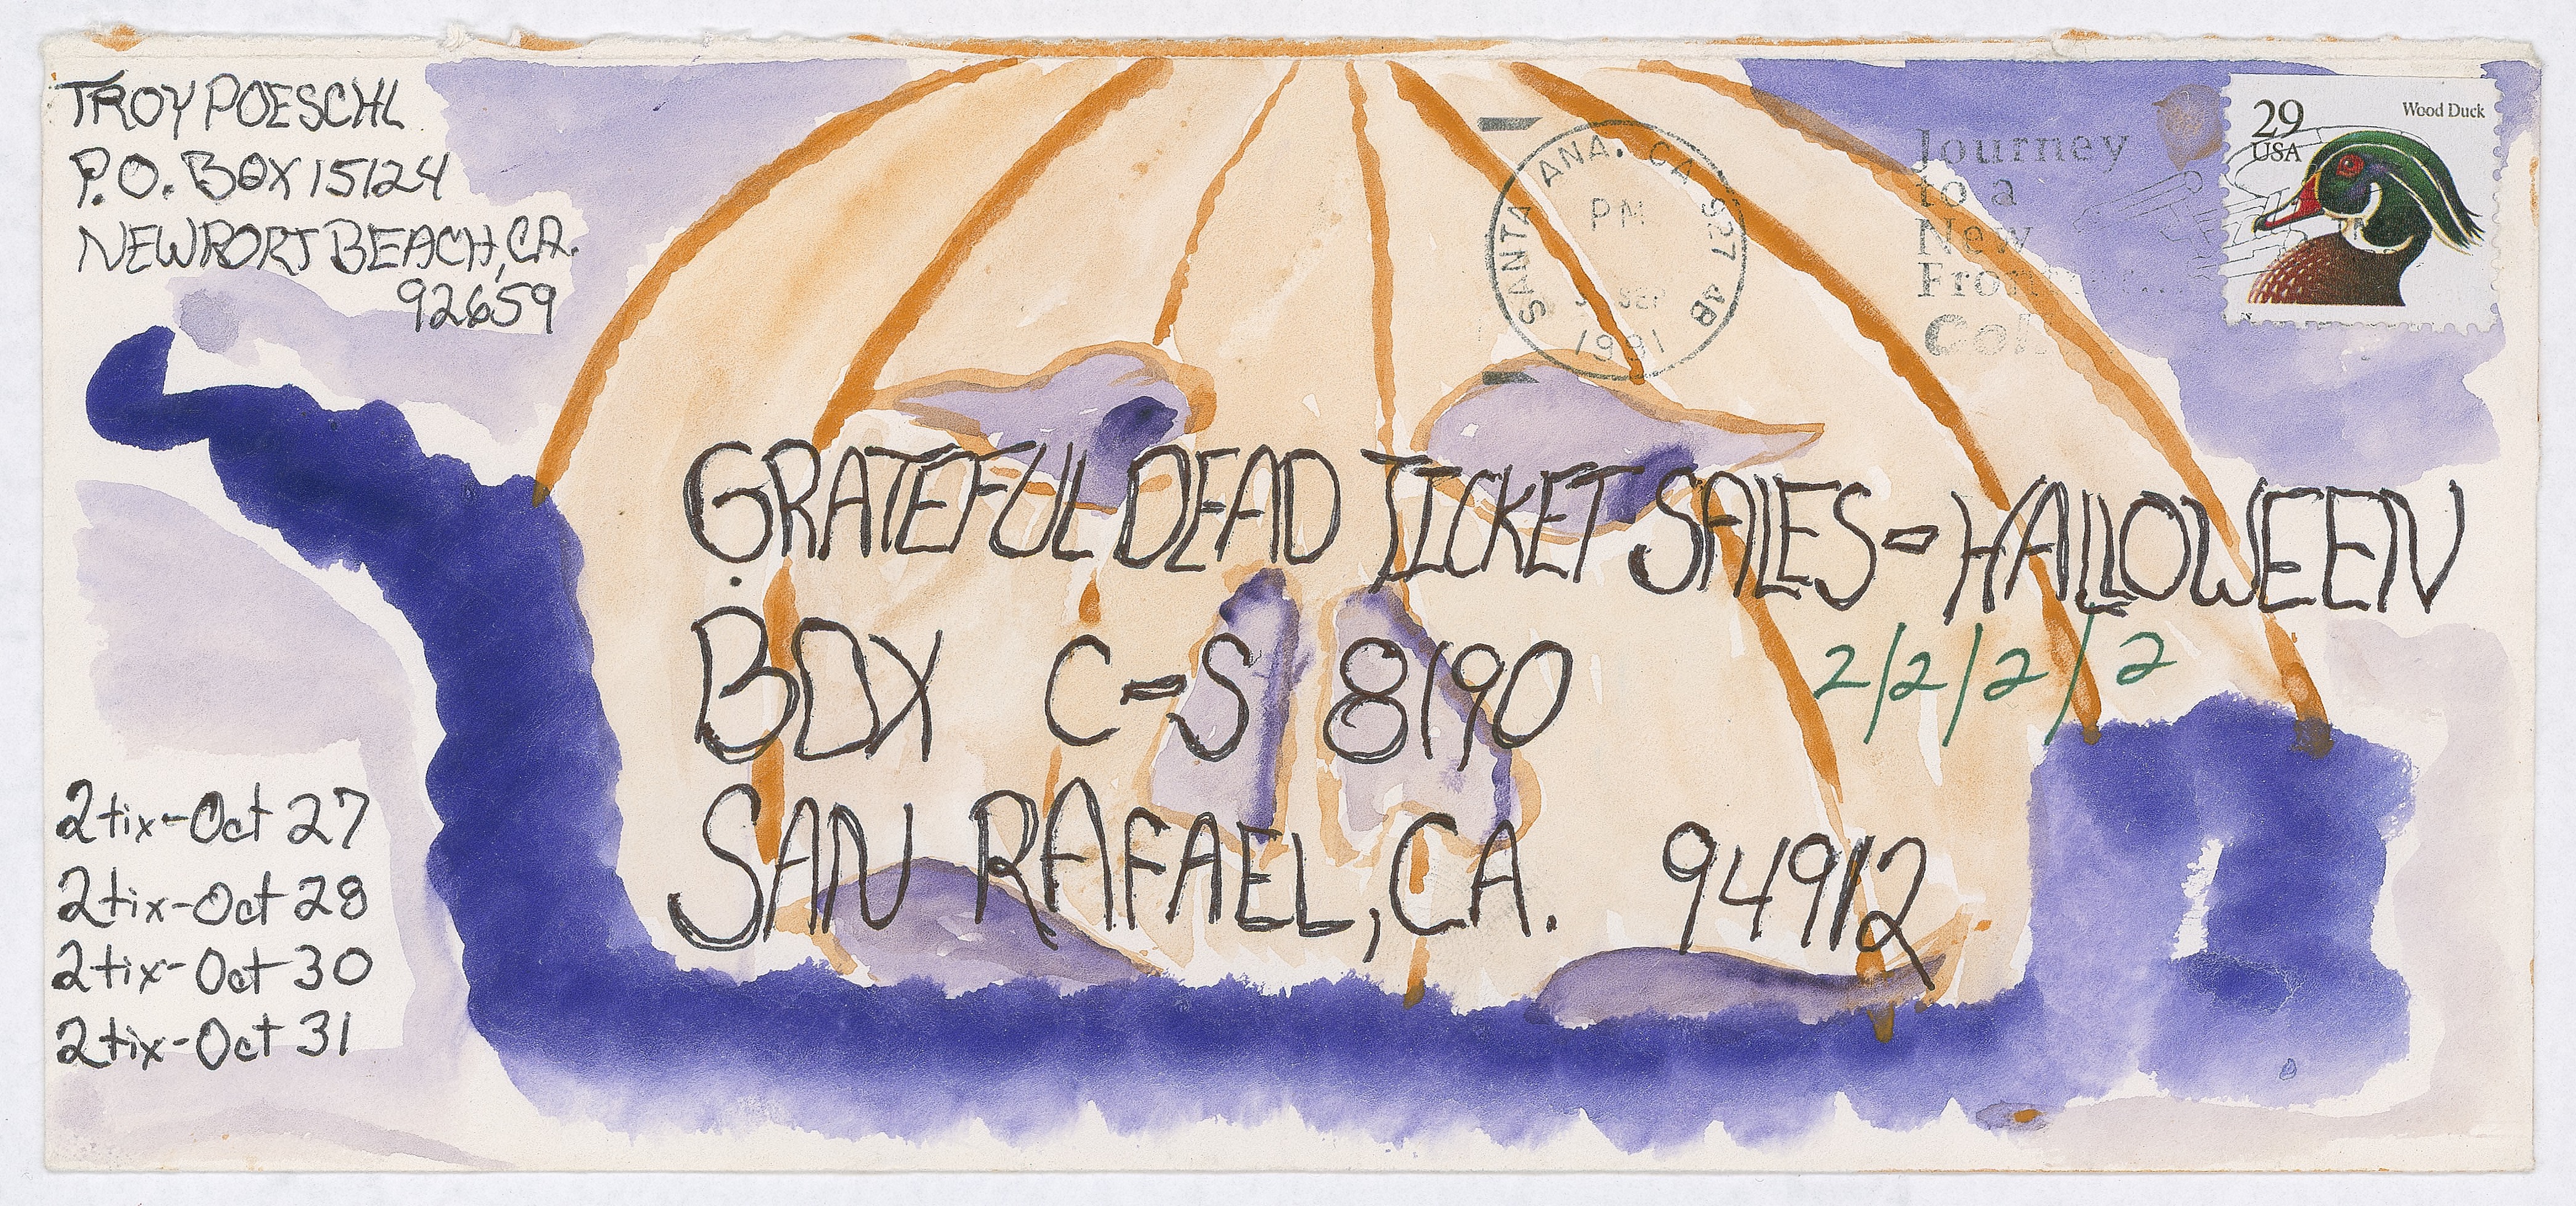 TROY POESCHL
P.O. BOX 15124
NEWPORT BEACH, CA.
92659
SANTA ANA. CA 927 #B
PM
SEP
1991
Journey
to a
New
29
USA
Wood Duck
GRATEFUL DEAD TICKET SALES-HALLOWEEN
BOX C-S 8190
2/2/2/2
SAN RAFAEL, CA. 94912
2 tix-Oct 27
2 tix-Oct 28
2 tix-Oct 30
2 tix-Oct 31